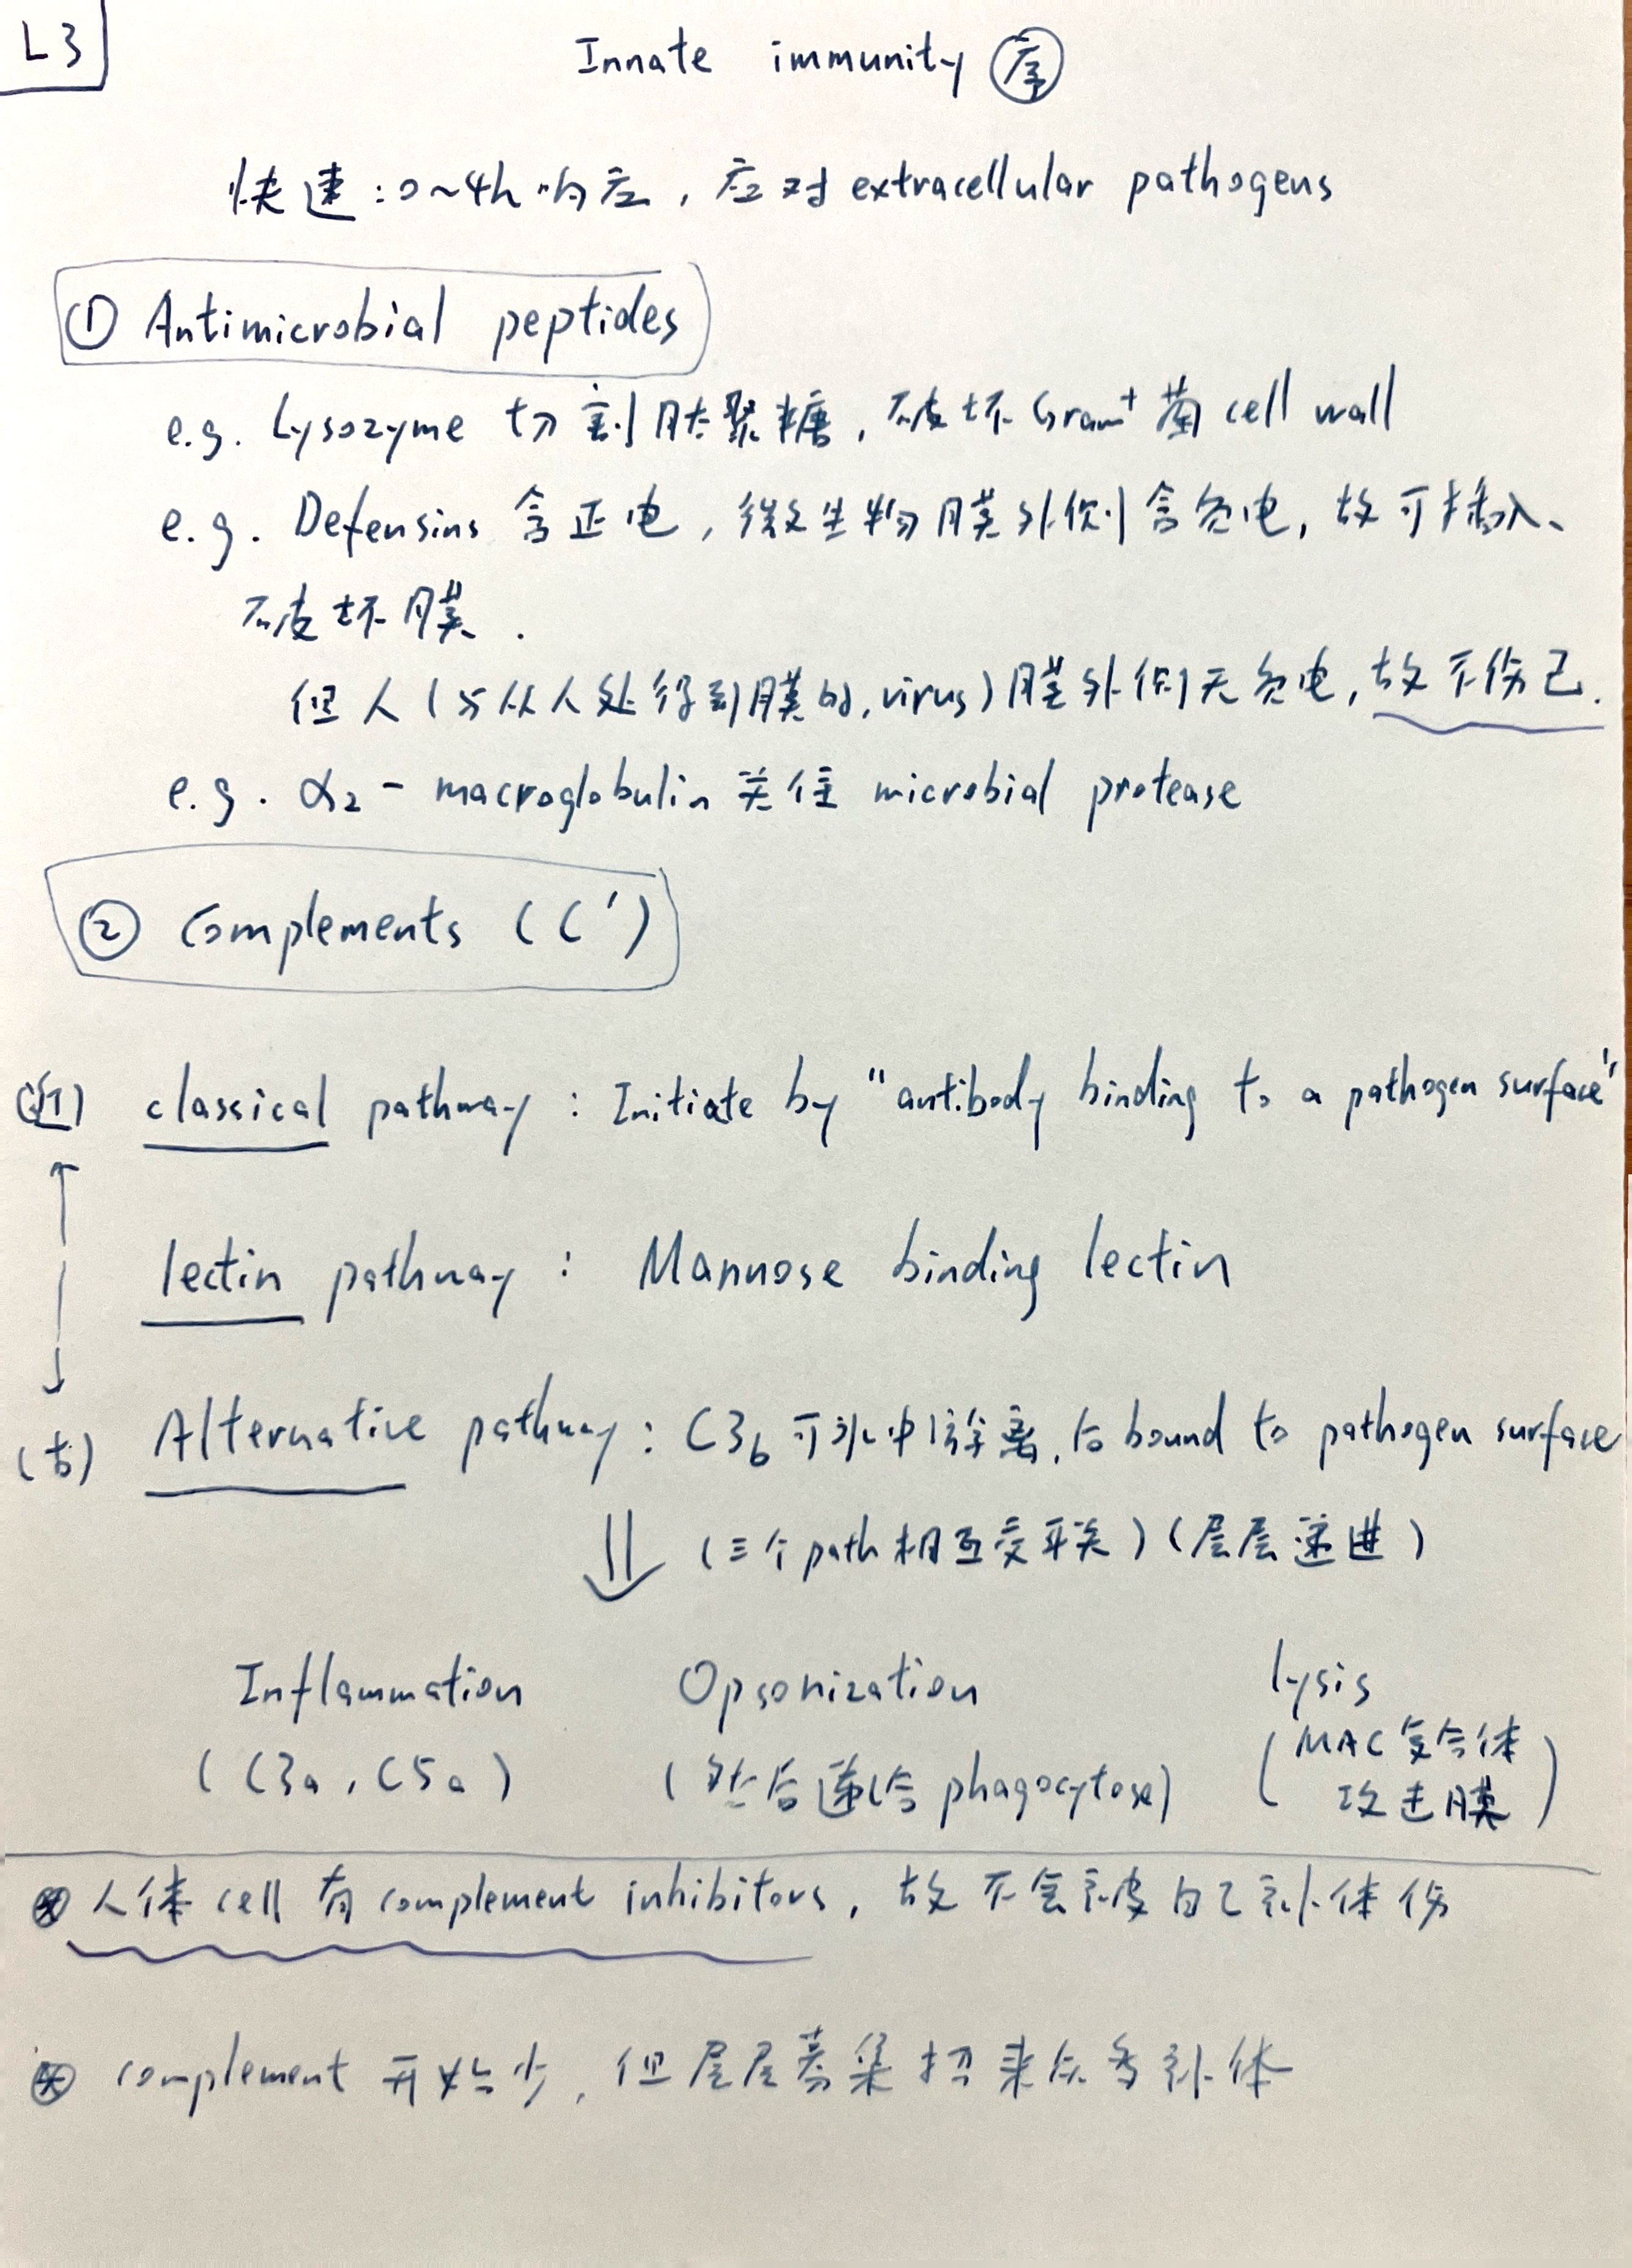 L3
Innate immunity 序
快速:0~4h响应,应对extracellular pathogens
① Antimicrobial peptides
e.g. Lysozyme 切割肽聚糖,破坏Gram⁺菌cell wall
e.g. Defensins 含正电,微生物膜外侧含负电,故可插入、
破坏膜.
但人(与从人处得到膜的,virus)膜外侧无负电,故不伤己.
e.g. α₂-macroglobulin 关住 microbial protease
② Complements (C')
(近) classical pathway: Initiate by "antibody binding to a pathogen surface"
lectin pathway: Mannose binding lectin
(古) Alternative pathway: C3b 可水中游离,后bound to pathogen surface
(三个path相互交联)(层层递进)
Inflammation Opsonization lysis
(C3a, C5a) (结合递给phagocytose) (MAC复合体
攻击膜)
⊛ 人体cell有complement inhibitors,故不会被自己补体伤
⊛ complement 开始少,但层层募集招来众多补体